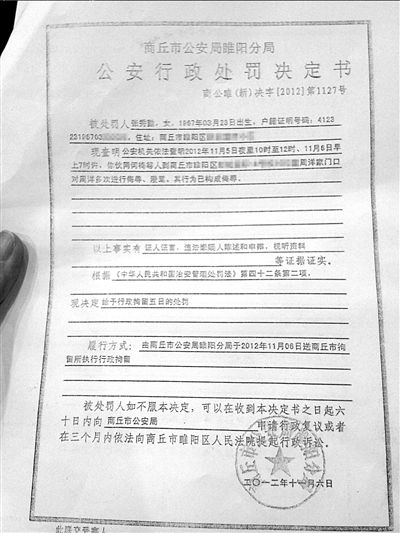 商丘市公安局睢阳分局
公安行政处罚决定书
商公睢(新)决字[2012]第1127号
被处罚人张秀勤,女,1967年03月23日出生,户籍证明号码:4123
23196703 ,住址:商丘市睢阳区
现查明公安机关依法查明2012年11月5日夜里10时至12时、11月6日早
上7时许,你伙同何 等人到商丘市睢阳区 周洋家门口
对周洋多次进行侮辱、谩骂,其行为已构成侮辱。
以上事实有 证人证言,违法嫌疑人陈述和申辩,视听资料
等证据证实。
根据《中华人民共和国治安管理处罚法》第四十二条第二项,
现决定 给予行政拘留五日的处罚
履行方式:由商丘市公安局睢阳分局于2012年11月06日送商丘市拘
留所执行行政拘留
被处罚人如不服本决定,可以在收到本决定书之日起六
十日内向 商丘市公安局 申请行政复议或者
在三个月内依法向商丘市睢阳区人民法院提起行政诉讼。
二〇一二年十一月六日